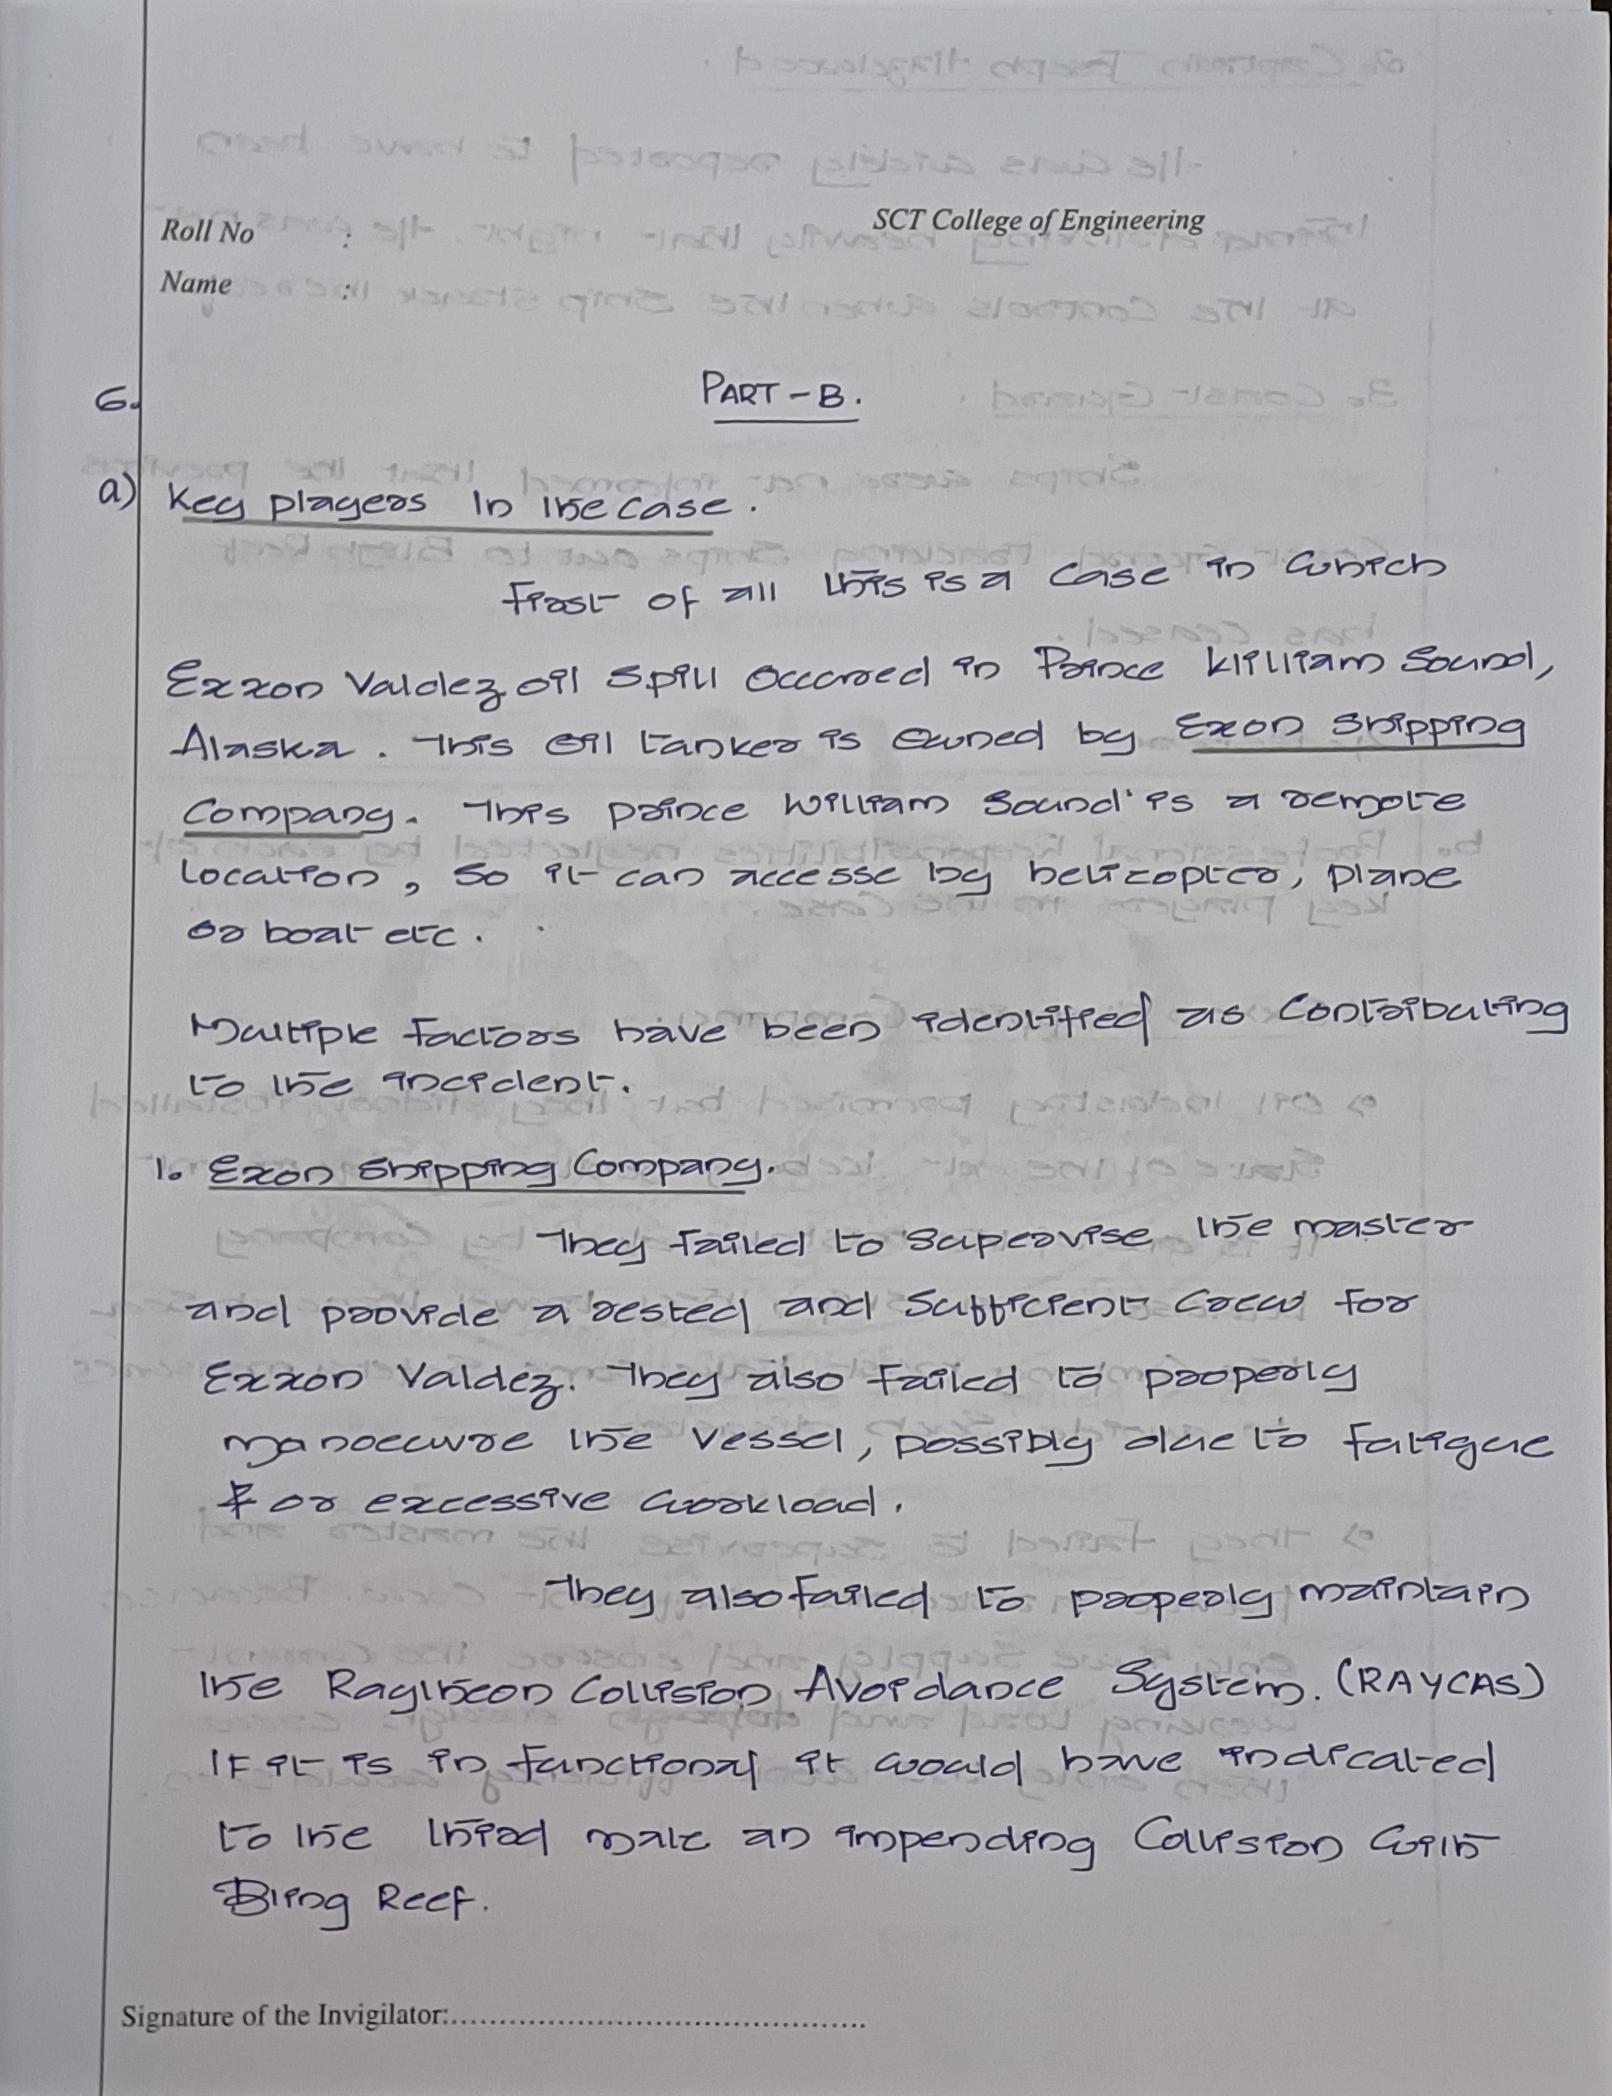 SCT College of Engineering
Roll No :
Name :
PART - B.
6.
a) Key players In the case.
First of all this is a case in which
Exxon Valdez oil spill Occcured in Prince William Sound,
Alaska. This oil tanker is owned by Exon shipping
Company. This prince william Sound' is a remote
location, so it can accesse by helicopter, plane
or boat etc.
Multiple factors have been identified as Contributing
to the incident.
1. Exon shipping Company.
They failed to supervise the master
and provide a rested and sufficient crew for
Exxon Valdez. They also failed to properly
manoeuvre the vessel, possibly due to fatigue
or excessive workload.
They also failed to properly maintain
the Raytheon Collision Avoidance System. (RAYCAS)
If it is in functional it would have indicated
to the third mate an impending Collision with
Bling Reef.
Signature of the Invigilator:..........................................